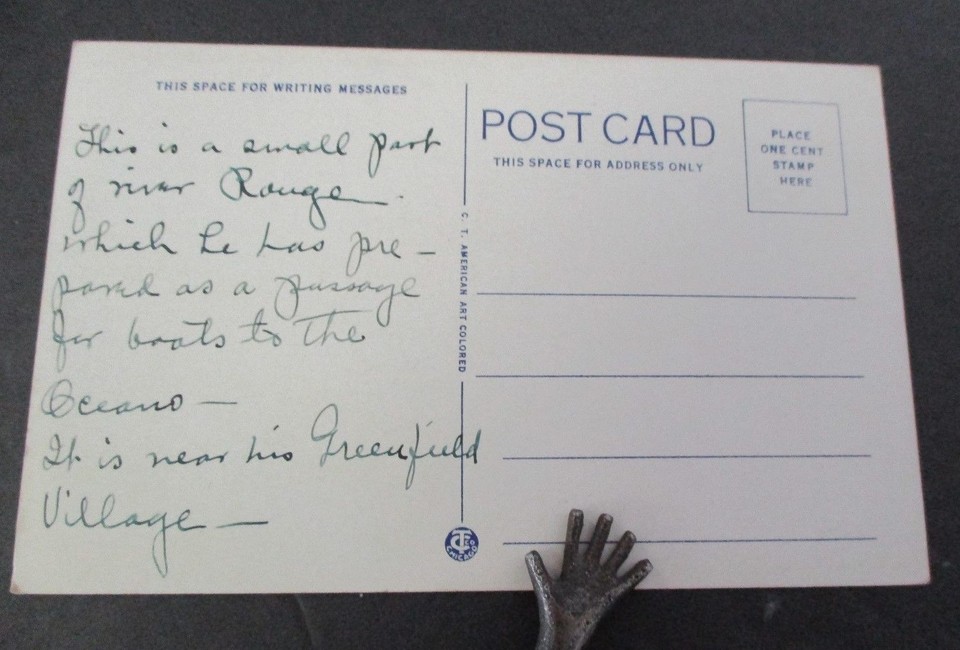 THIS SPACE FOR WRITING MESSAGES
This is a small part
of river Rouge.
which he has pre-
pared as a passage
for boats to the
Oceans —
It is near his Greenfield
Village —
POST CARD
THIS SPACE FOR ADDRESS ONLY
PLACE
ONE CENT
STAMP
HERE
C. T. AMERICAN ART COLORED
CHICAGO